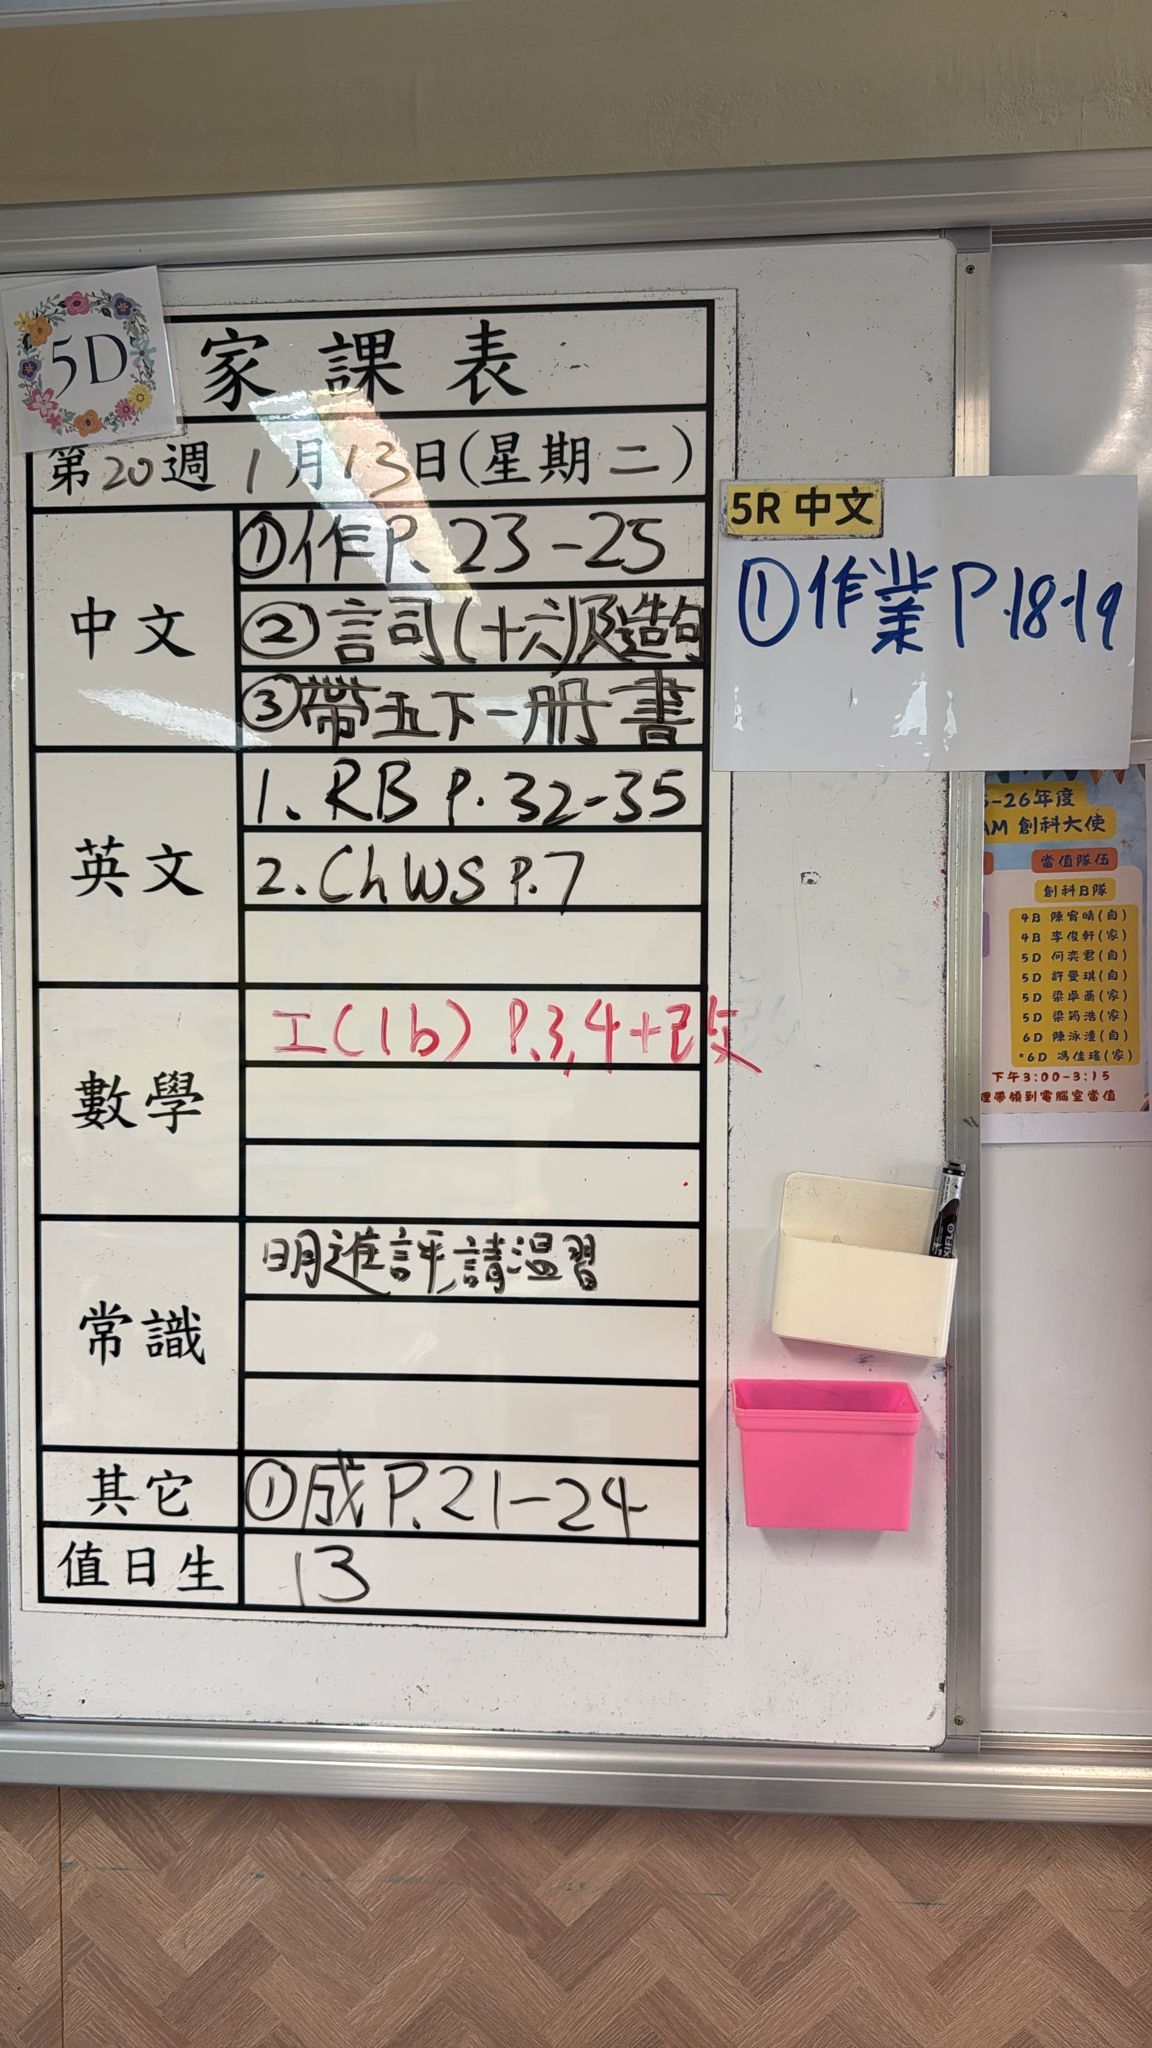 5D
家課表
第20週 1月13日(星期二)
中文
①作P.23-25
②詞(十六)及造句
③帶五下一册書
英文
1. RB P.32-35
2. Ch WS P.7
數學
工(1b) P.3,4+改
常識
明進評,請溫習
其它
①成P.21-24
值日生
13
5R 中文
①作業P.18-19
-26年度
AM 創科大使
當值隊伍
創科B隊
4B 陳宥晴(自)
4B 李俊軒(家)
5D 何奕君(自)
5D 許曼琪(自)
5D 梁卓喬(家)
5D 梁筠浩(家)
6D 陳泳潼(自)
*6D 馮佳瑤(家)
下午3:00-3:15
帶領到電腦室當值